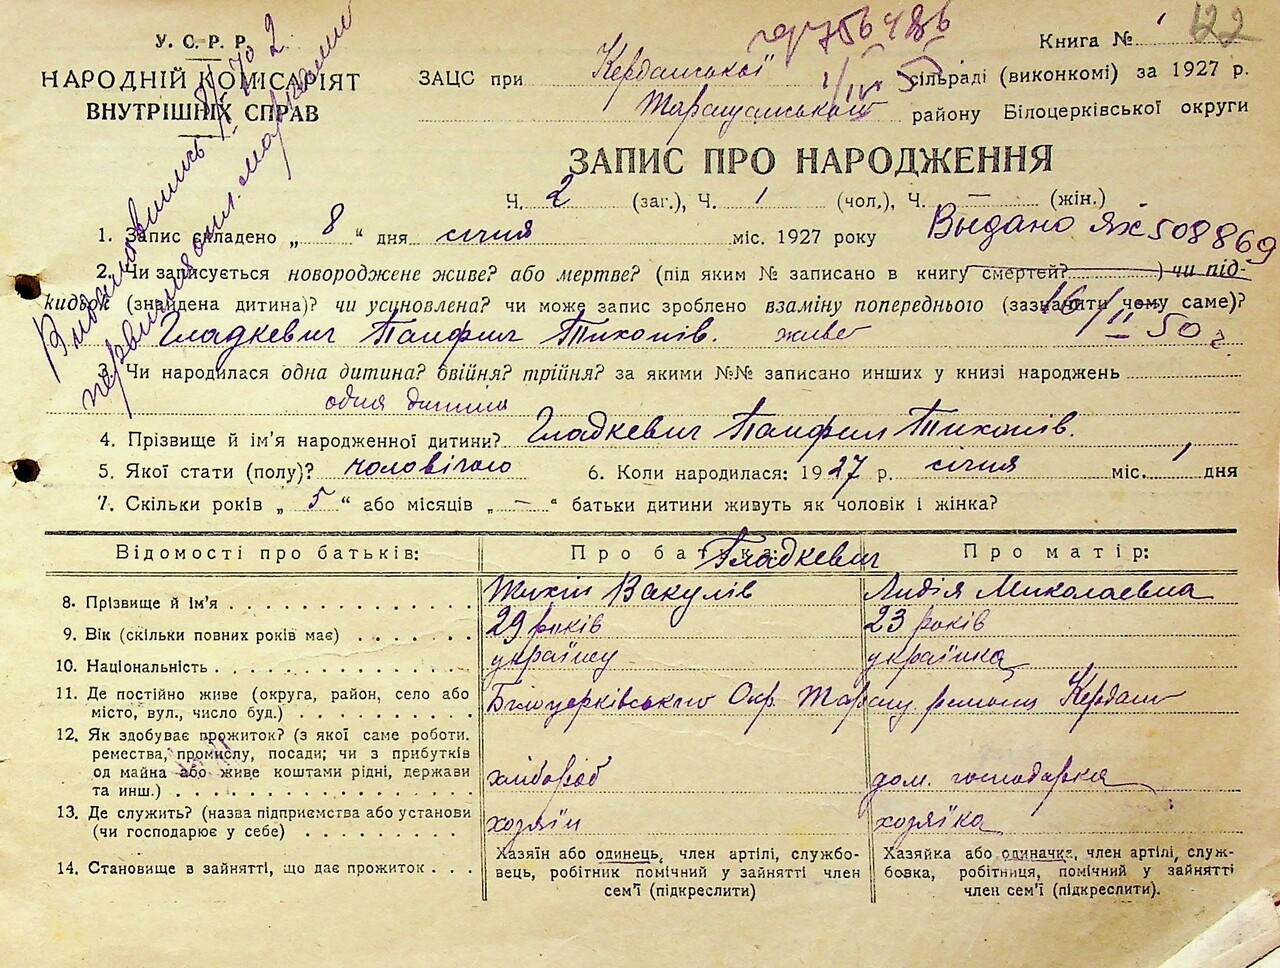 122
гр 756486
У. С. Р. Р.
НАРОДНІЙ КОМІСАРІЯТ
ВНУТРІШНІХ СПРАВ
Книга №
ЗАЦС при Керданської сільраді (виконкомі) за 1927 р.
Таращанського району Білоцерківської округи
ЗАПИС ПРО НАРОДЖЕННЯ
Ч. 2 (заг.), Ч. 1 (чол.), Ч. — (жін.)
1. Запис складено „ 8 “ дня січня міс. 1927 року
Выдано ЯХ 508869
2. Чи записується новороджене живе? або мертве? (під яким № записано в книгу смертей? ) чи під-
кидок (знайдена дитина)? чи усиновлена? чи може запис зроблено взаміну попереднього (зазначити чому саме)?
Гладкевич Панфил Тихонів. живе
16/II 50 г
3. Чи народилася одна дитина? двійня? трійня? за якими №№ записано инших у книзі народжень
одна дитина
4. Прізвище й ім'я народженної дитини? Гладкевич Панфил Тихонів.
5. Якої стати (полу)? чоловічого 6. Коли народилася: 1927 р. січня міс. 1 дня
7. Скільки років „ 5 “ або місяців „ — “ батьки дитини живуть як чоловік і жінка?
Відомості про батьків: Про батька: Про матір:
Гладкевич
8. Прізвище й ім'я Тихін Вакулів Лидія Миколаевна
9. Вік (скільки повних років має) 29 років 23 років
10. Національність українц українка
11. Де постійно живе (округа, район, село або
місто, вул., число буд.) Білоцерківського Окр. Таращ. Кердани
12. Як здобуває прожиток? (з якої саме роботи.
ремества, промислу, посади; чи з прибутків
од майна або живе коштами рідні, держави
та инш.) хлібороб дом. господарка
13. Де служить? (назва підприємства або установи
(чи господарює у себе) хозяїн хозяїка
14. Становище в зайнятті, що дає прожиток
Хазяїн або одинець, член артілі, службо-
вець, робітник помічний у зайнятті член
сем'ї (підкреслити)
Хазяйка або одиначка, член артілі, служ-
бовка, робітниця, помічний у зайнятті
член сем'ї (підкреслити).